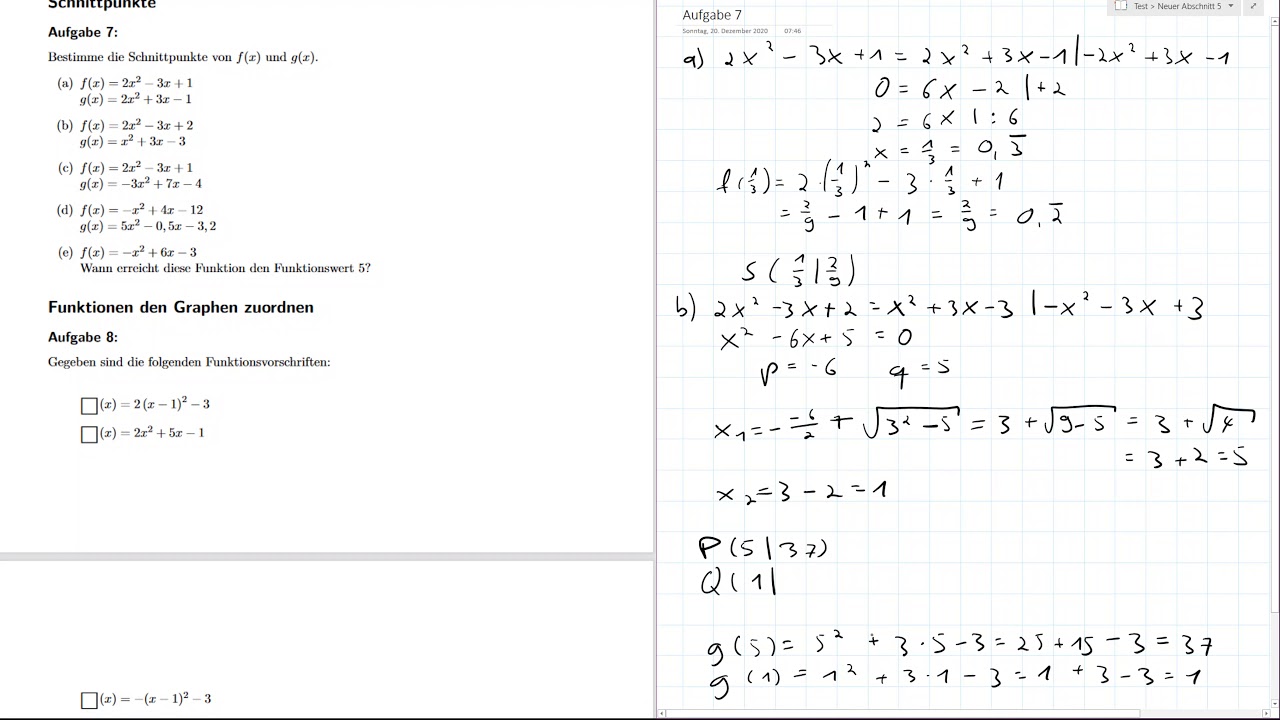 Schnittpunkte
Aufgabe 7:
Bestimme die Schnittpunkte von f(x) und g(x).
(a) f(x) = 2x² − 3x + 1
g(x) = 2x² + 3x − 1
(b) f(x) = 2x² − 3x + 2
g(x) = x² + 3x − 3
(c) f(x) = 2x² − 3x + 1
g(x) = −3x² + 7x − 4
(d) f(x) = −x² + 4x − 12
g(x) = 5x² − 0,5x − 3,2
(e) f(x) = −x² + 6x − 3
Wann erreicht diese Funktion den Funktionswert 5?
Funktionen den Graphen zuordnen
Aufgabe 8:
Gegeben sind die folgenden Funktionsvorschriften:
☐(x) = 2 (x − 1)² − 3
☐(x) = 2x² + 5x − 1
☐(x) = −(x − 1)² − 3
Test > Neuer Abschnitt 5
Aufgabe 7
Sonntag, 20. Dezember 2020 07:46
a) 2x² − 3x + 1 = 2x² + 3x − 1 | −2x² + 3x − 1
0 = 6x − 2 | + 2
2 = 6x | : 6
x = 1/3 = 0,3̅
f(1/3) = 2 · (1/3)² − 3 · 1/3 + 1
= 2/9 − 1 + 1 = 2/9 = 0,2̅
S ( 1/3 | 2/9 )
b) 2x² − 3x + 2 = x² + 3x − 3 | −x² − 3x + 3
x² − 6x + 5 = 0
p = −6 q = 5
x₁ = − −6/2 + √(3² − 5) = 3 + √(9 − 5) = 3 + √4
= 3 + 2 = 5
x₂ = 3 − 2 = 1
P (5 | 37)
Q ( 1 |
g (5) = 5² + 3 · 5 − 3 = 25 + 15 − 3 = 37
g (1) = 1² + 3 · 1 − 3 = 1 + 3 − 3 = 1